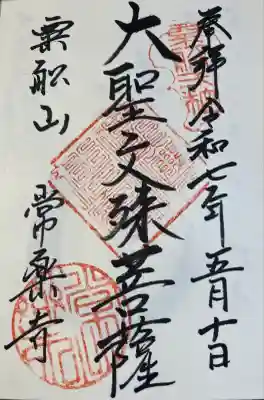 奉拝 令和七年 五月十日
大聖文殊菩薩
粟船山 常楽寺